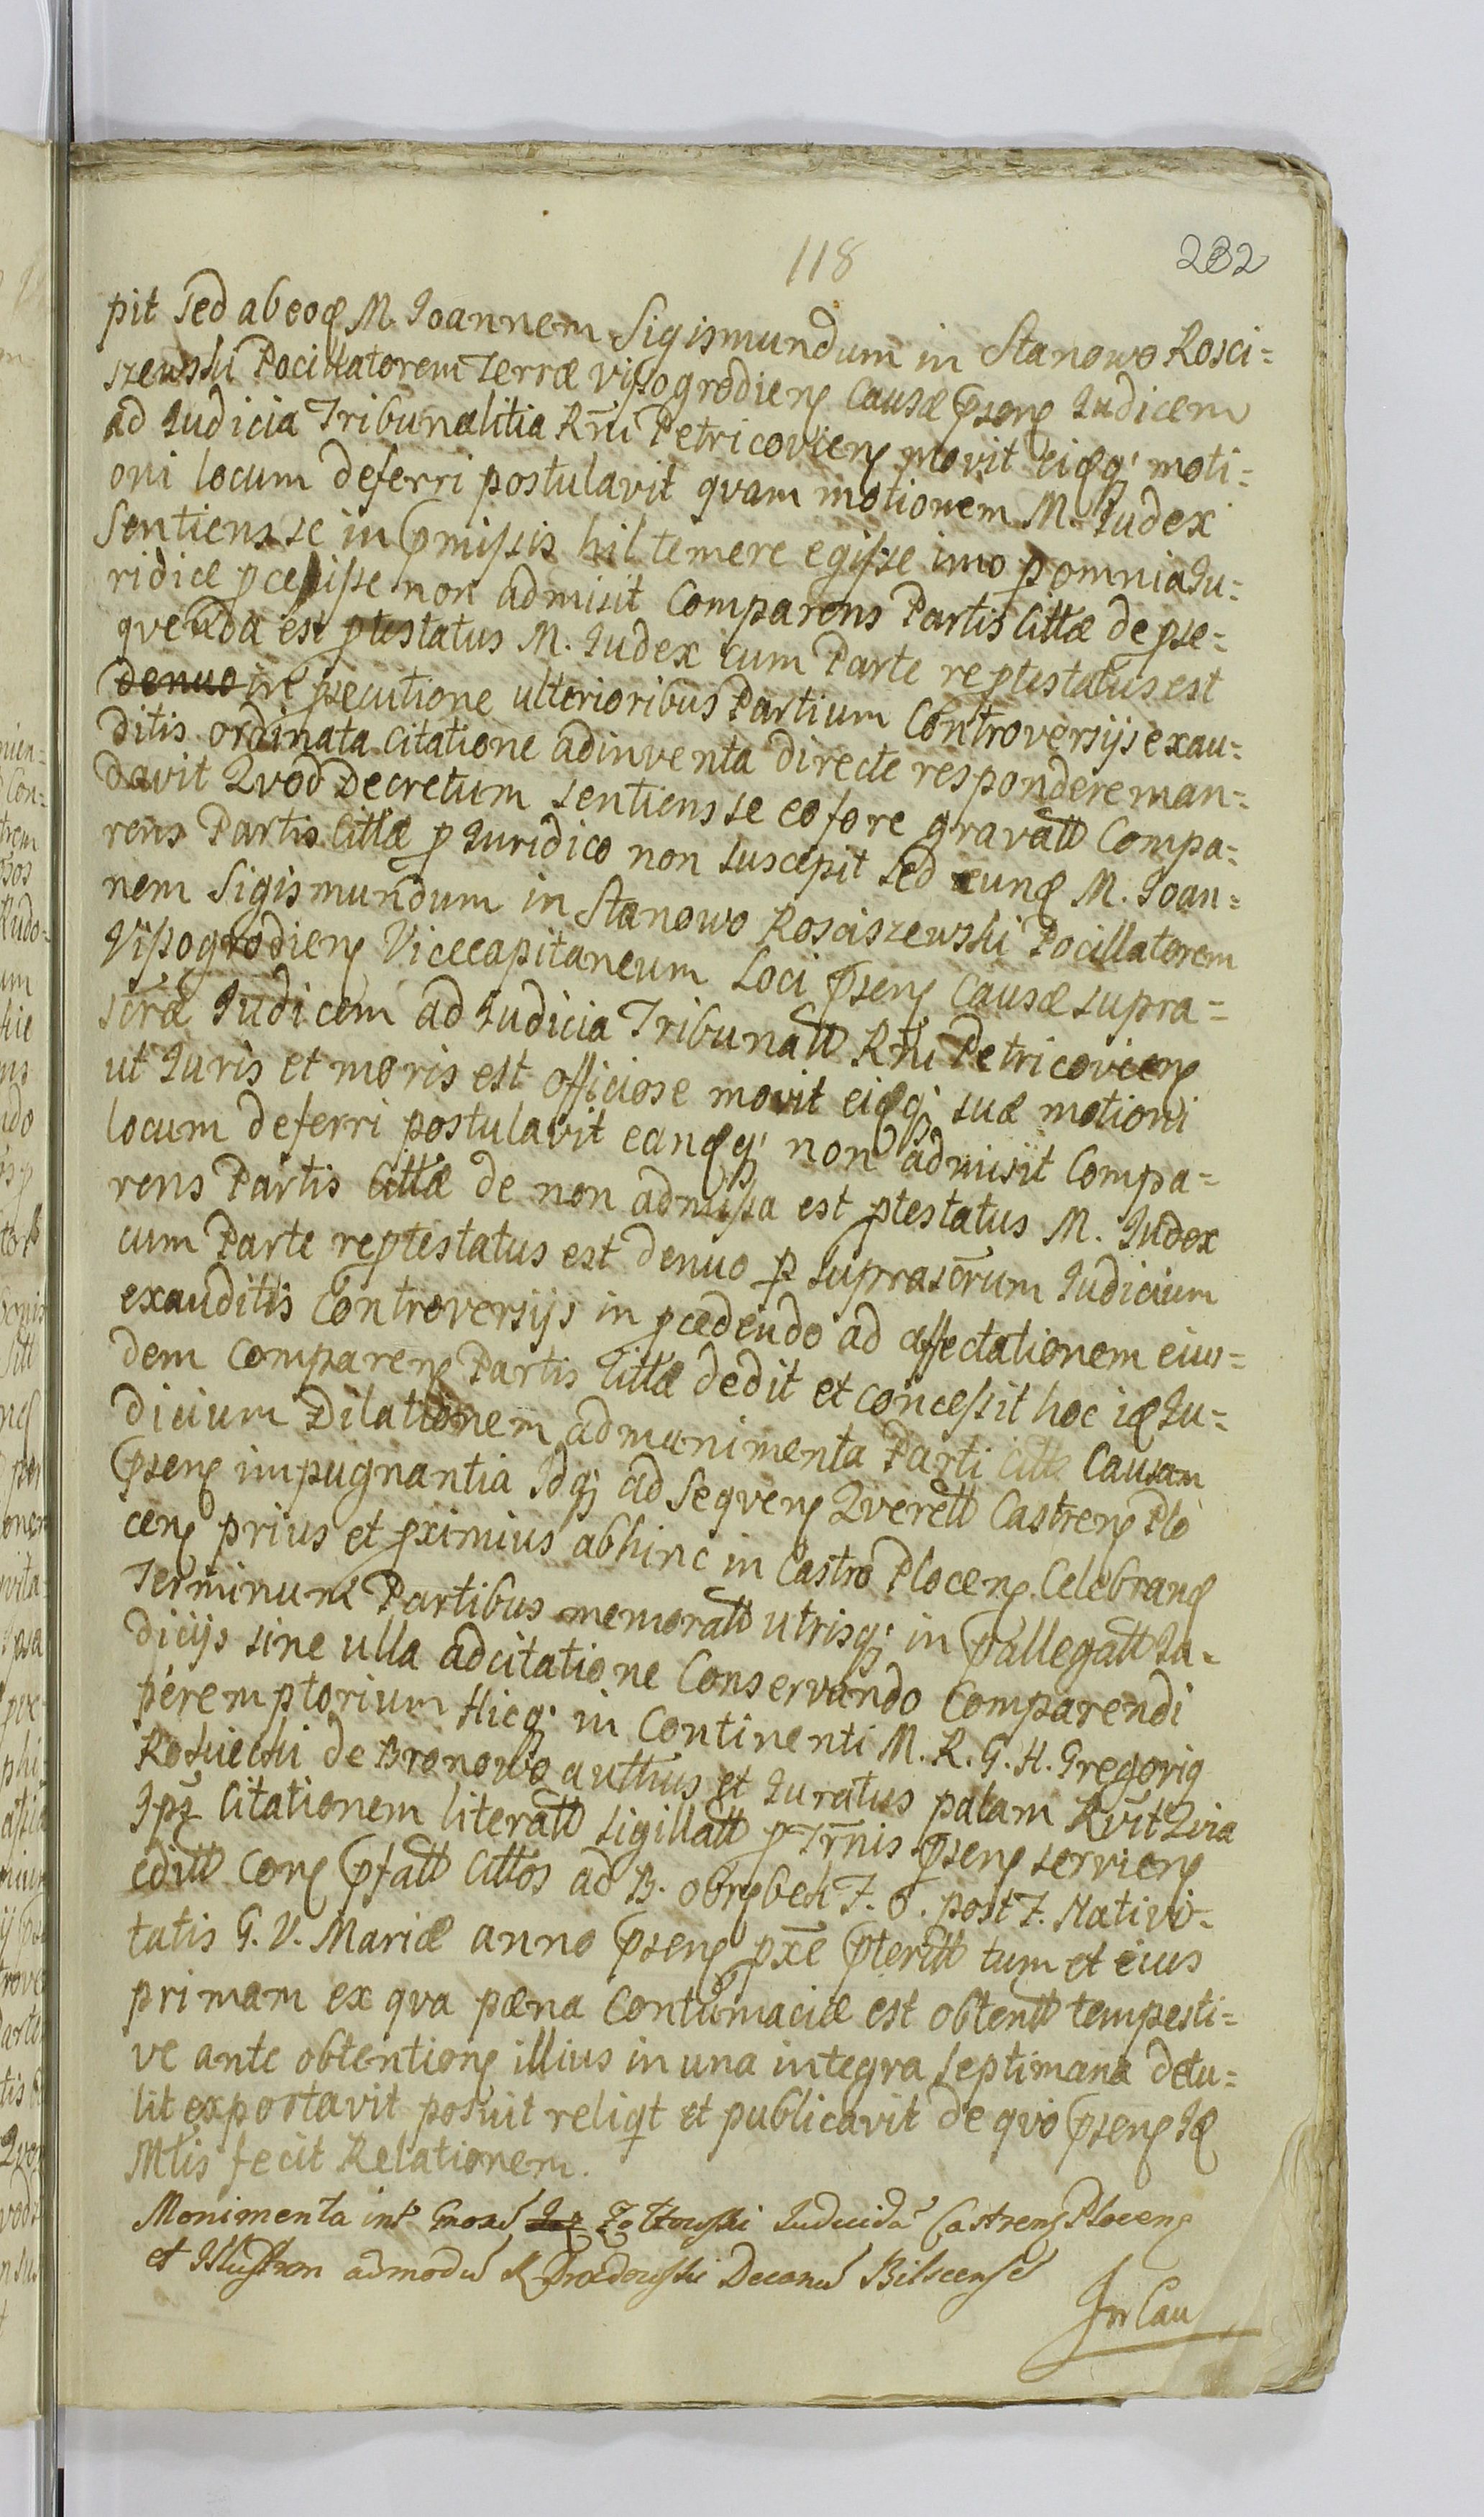 118
232
pit sed ab eoꝙ M. Joannem Sigismundum in Stanowo Rosci=
szewski Pocillatorem Terræ Vissogrodien̄ Causæ p̄sen̄ Judicem
ad Judicia Tribunalitia Rn̄i Petricovien̄ movit eiꝙq; moti=
oni locum deferri postulavit qvam motionem M. Judex
Sentiens se in p̄missis hil temere egisse imo p omnia Ju=
ridice pcepisse non admisit Comparens Partis Cittæ de pse=
qvenda est ptestatus M. Judex cum Parte reptestatus est
denuo in psecutione ulterioribus Partium Controversijs exau=
ditis ordinata Citatione adinventa directe respondere man=
davit Qvod Decretum sentiens se eo fore gravatt Compa=
rens Partis Cittæ p Juridico non suscepit sed eunꝙ M. Joan=
nem Sigismundum in Stanowo Rosciszewski Pocillatorem
Vissogrodien̄ Vicecapitaneum Loci p̄sen̄ Causæ supra=
scræ Judicem ad Judicia Tribunatt Rn̄i Petricovien̄
ut Juris et moris est officiose movit eiꝙq; suæ motioni
locum deferri postulavit eanꝙq; non admisit Compa=
rens Partis Cittæ de non admissa est ptestatus M. Judex
cum Parte reptestatus est denuo p suprascrum Judicium
exauditis Controversijs in pcedendo ad affectationem eius=
dem Comparen̄ Partis Cittæ dedit et concessit hoc iꝙ Ju=
dicium Dilationem ad munimenta Parti Cittæ Causam
p̄sen̄ impugnantia Idq; ad Seqven̄ Qverett Castren̄ Plo
cen̄ prius et pximius abhinc in Castro Plocen̄ Celebranꝙ
Terminum Partibus memoratt utrisq; in p̄allegatt Ju=
dicijs sine ulla adcitatione Conservando Comparendi
peremptorium Hicq; in Continenti M. R. G. H. Gregorig
de Bronowo autthus et Juratus palam Rvit Qvia
Ipꝫ Citationem literatt sigillatt p Trn̄is p̄sen̄ servien̄
editt Con̄ p̄fatt Cittos ad B. F. 6. post F. Nativi=
tatis G. V. Mariæ anno p̄sen̄ pxe p̄teritt tum et eius
primam ex qva pæna Contumaciæ est obtentt tempesti=
ve ante obtention̄ illius in una integra septimana detu=
lit exportavit posuit reliqt et publicavit de qvo p̄sen̄ Jꝙ
Mtis fecit Relationem.
Monimenta int Gnosd Zołtowski Castren̄ Plocen̄
et Illustrem admodu R Decanu
In Cau